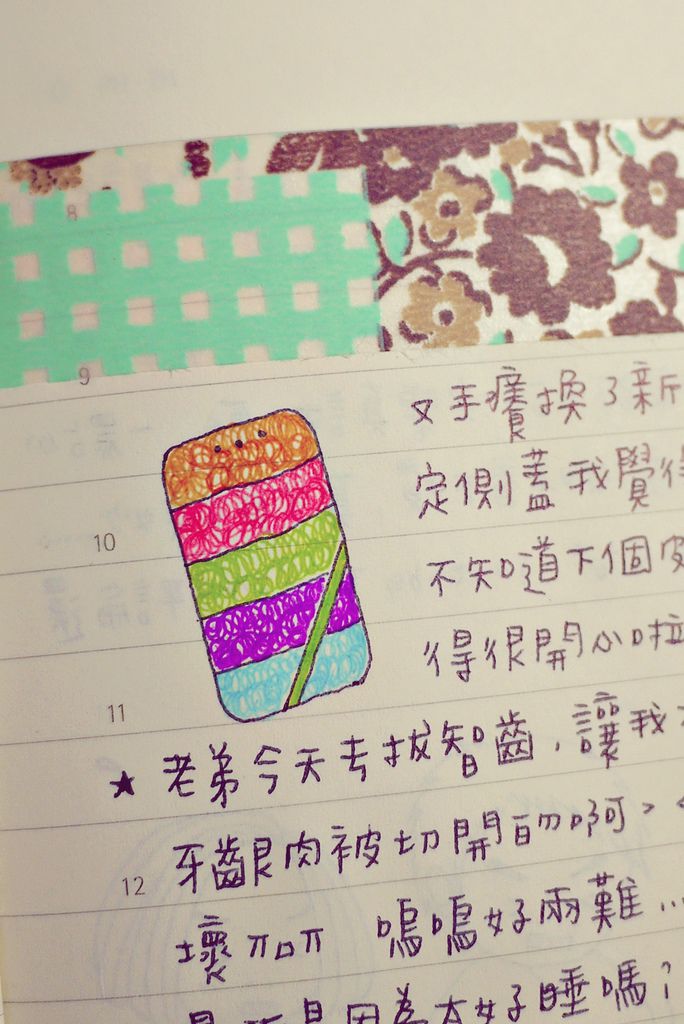 8
9
又手癢換了新
定側蓋我覺得
10
不知道下個皮
得很開心啦
11
★ 老弟今天去拔智齒,讓我
牙齦肉被切開的啊><
12
壞 π口π 嗚嗚好兩難...
是因為太好睡嗎?